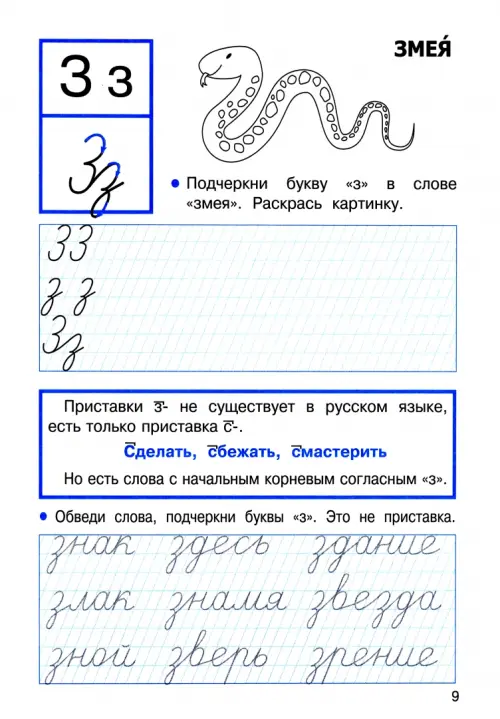 З з
ЗМЕЯ́
Зз
• Подчеркни букву «з» в слове
«змея». Раскрась картинку.
З З
з з
Зз
Приставки з- не существует в русском языке,
есть только приставка с-.
Сделать, сбежать, смастерить
Но есть слова с начальным корневым согласным «з».
• Обведи слова, подчеркни буквы «з». Это не приставка.
знак здесь здание
злак знамя звезда
зной зверь зрение
9